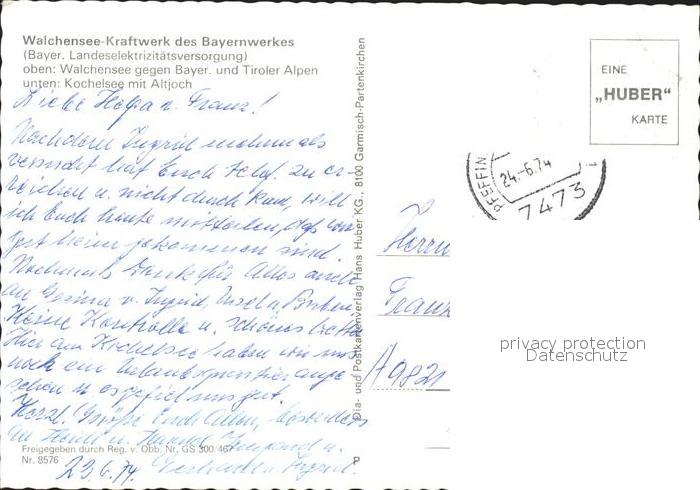 Walchensee-Kraftwerk des Bayernwerkes
(Bayer. Landeselektrizitätsversorgung)
oben: Walchensee gegen Bayer. und Tiroler Alpen
unten: Kochelsee mit Altjoch
Liebe Helga u. Franz!
Nachdem Ingrid mehrmals
versucht hat Euch telef. zu er-
reichen u. nicht durch kam, will
ich Euch heute mitteilen, daß wir
gut heim gekommen sind.
Nochmals Dank für Alles auch
an Germa v. Ingrid,
Keine Kontrolle u. schönes Wetter
Hier am Kochelsee haben wir uns
noch ein Urlaubsquartier ange-
sehen u. es gefiel uns gut.
Herzl. Grüße Euch Allen, besonders
an Heidi u.
23.6.74.
Freigegeben durch Reg. v. Obb. Nr. GS 300/467
Nr. 8576
P
Dia- und Postkartenverlag Hans Huber KG., 8100 Garmisch-Partenkirchen
EINE
„HUBER"
KARTE
PFEFFIN
24.-6.74
7473
Herrn
Franz
A9821
privacy protection
Datenschutz